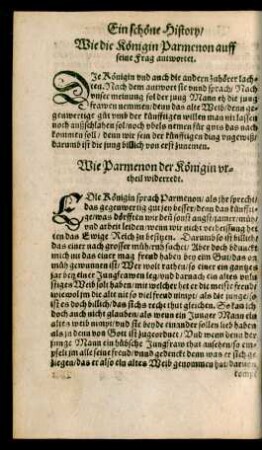 Ein schöne History/
Wie die Königin Parmenon auff
seine Frag antwortet.
DJe Königin vnd auch die andern zuhörer lach-
ten. Nach dem antwort sie vnnd sprach: Nach
vnser meinung sol der jung Mann eh die jung
frawen nemmen/ denn das alte Weib/ denn ge-
genwertige güt vmb der künfftigen willen man nit lassen
noch außschlahen sol/ noch übels nemen für guts das nach
kommen soll/ denn wir sein der künfftigen ding vngewiß/
darumb ist die jung billich von erst zunemen.
Wie Parmenon der Königin vr-
theil widerredt.
EDle Königin sprach Parmenon/ als jhr sprecht/
das gegenwertig gut sey besser/ denn das künffti-
ge/ was dörfften wir deñ sonst angst/ jamer/ müh/
vnd arbeit leiden/ wenn wir nicht verheissung het
ten das Ewige Reich zu besitzen. Darumb so ist billich
das einer nach grosser müh ruh suche/ Aber doch bedunckt
mich nit das einer mag freud haben bey eim Gut/ das on
müh gewunnen ist: Wer wolt rathen/ so einer ein gantzes
jar bey einer Jungfrawen leg/ vnd darnach ein altes
Weib solt haben/ mit welcher het er die meiste freud/
wiewol jm die alt nit so viel freud nimpt/ als die junge/ so
ist es doch billich/ das sichs recht thut gleichen. So kan ich
doch auch nicht glauben/ als wenn ein Junger Mann ein
alts weib nimpt/ vnd sie beyde einander sollen lieb haben
als zu denn von Gott ist zugeordnet/ Vnd wenn denn der
junge Mann ein hübsche Jungfraw thut ansehen/ so em-
pfelt jm alle seine freud/ vnnd gedenckt denn was er sich ge-
ziegen/ das er also ein altes Weib genommen hat/ darnen
kompt